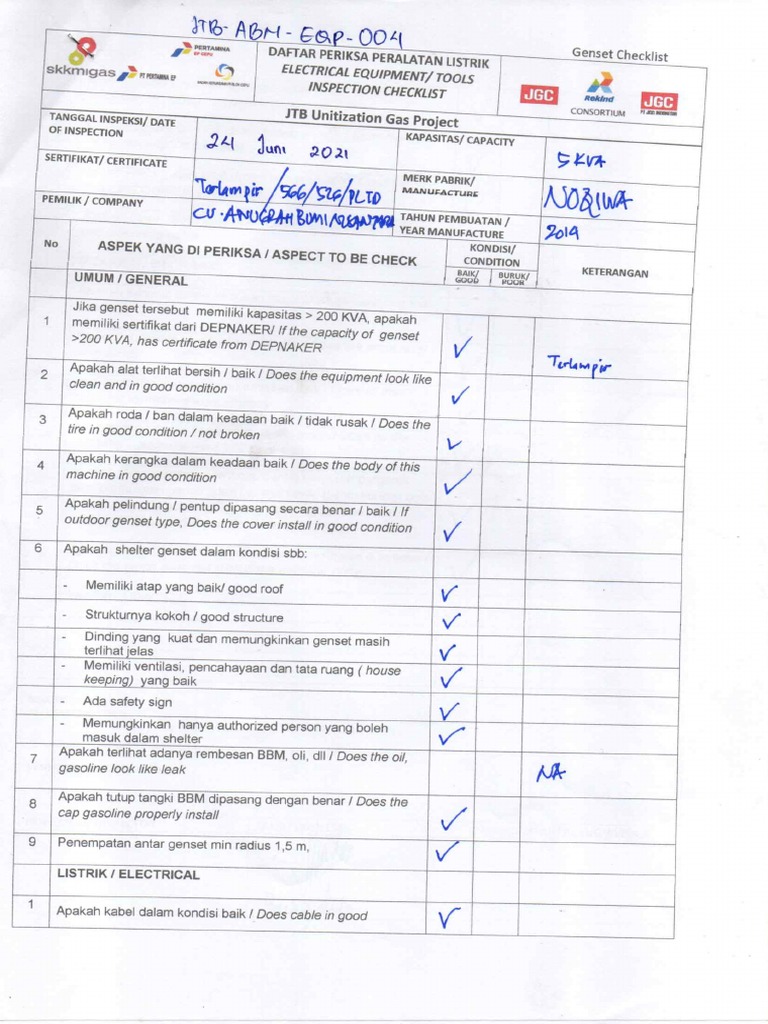 JTB-ABM-EQP-004
Genset Checklist
skkmigas
PT PERTAMINA EP
PERTAMINA
EP CEPU
DAFTAR PERIKSA PERALATAN LISTRIK
ELECTRICAL EQUIPMENT/ TOOLS
INSPECTION CHECKLIST
JGC
Rekind
CONSORTIUM
JGC
PT JGC INDONESIA
JTB Unitization Gas Project
TANGGAL INSPEKSI/ DATE OF INSPECTION
24 Juni 2021
KAPASITAS/ CAPACITY
5 KVA
SERTIFIKAT/ CERTIFICATE
Terlampir /566/526/PLTD
MERK PABRIK/ MANUFACTURE
PEMILIK / COMPANY
CV. ANUGRAH BUMI NUSANTARA
TAHUN PEMBUATAN / YEAR MANUFACTURE
2019
No
ASPEK YANG DI PERIKSA / ASPECT TO BE CHECK
KONDISI/ CONDITION
BAIK/ GOOD
BURUK/ POOR
KETERANGAN
UMUM / GENERAL
1
Jika genset tersebut memiliki kapasitas > 200 KVA, apakah
memiliki sertifikat dari DEPNAKER/ If the capacity of genset
>200 KVA, has certificate from DEPNAKER
✓
Terlampir
2
Apakah alat terlihat bersih / baik / Does the equipment look like
clean and in good condition
✓
3
Apakah roda / ban dalam keadaan baik / tidak rusak / Does the
tire in good condition / not broken
✓
4
Apakah kerangka dalam keadaan baik / Does the body of this
machine in good condition
✓
5
Apakah pelindung / pentup dipasang secara benar / baik / If
outdoor genset type, Does the cover install in good condition
✓
6
Apakah shelter genset dalam kondisi sbb:
- Memiliki atap yang baik/ good roof
✓
- Strukturnya kokoh / good structure
✓
- Dinding yang kuat dan memungkinkan genset masih
terlihat jelas
✓
- Memiliki ventilasi, pencahayaan dan tata ruang ( house
keeping) yang baik
✓
- Ada safety sign
✓
- Memungkinkan hanya authorized person yang boleh
masuk dalam shelter
✓
7
Apakah terlihat adanya rembesan BBM, oli, dll / Does the oil,
gasoline look like leak
NA
8
Apakah tutup tangki BBM dipasang dengan benar / Does the
cap gasoline properly install
✓
9
Penempatan antar genset min radius 1,5 m,
✓
LISTRIK / ELECTRICAL
1
Apakah kabel dalam kondisi baik / Does cable in good
✓